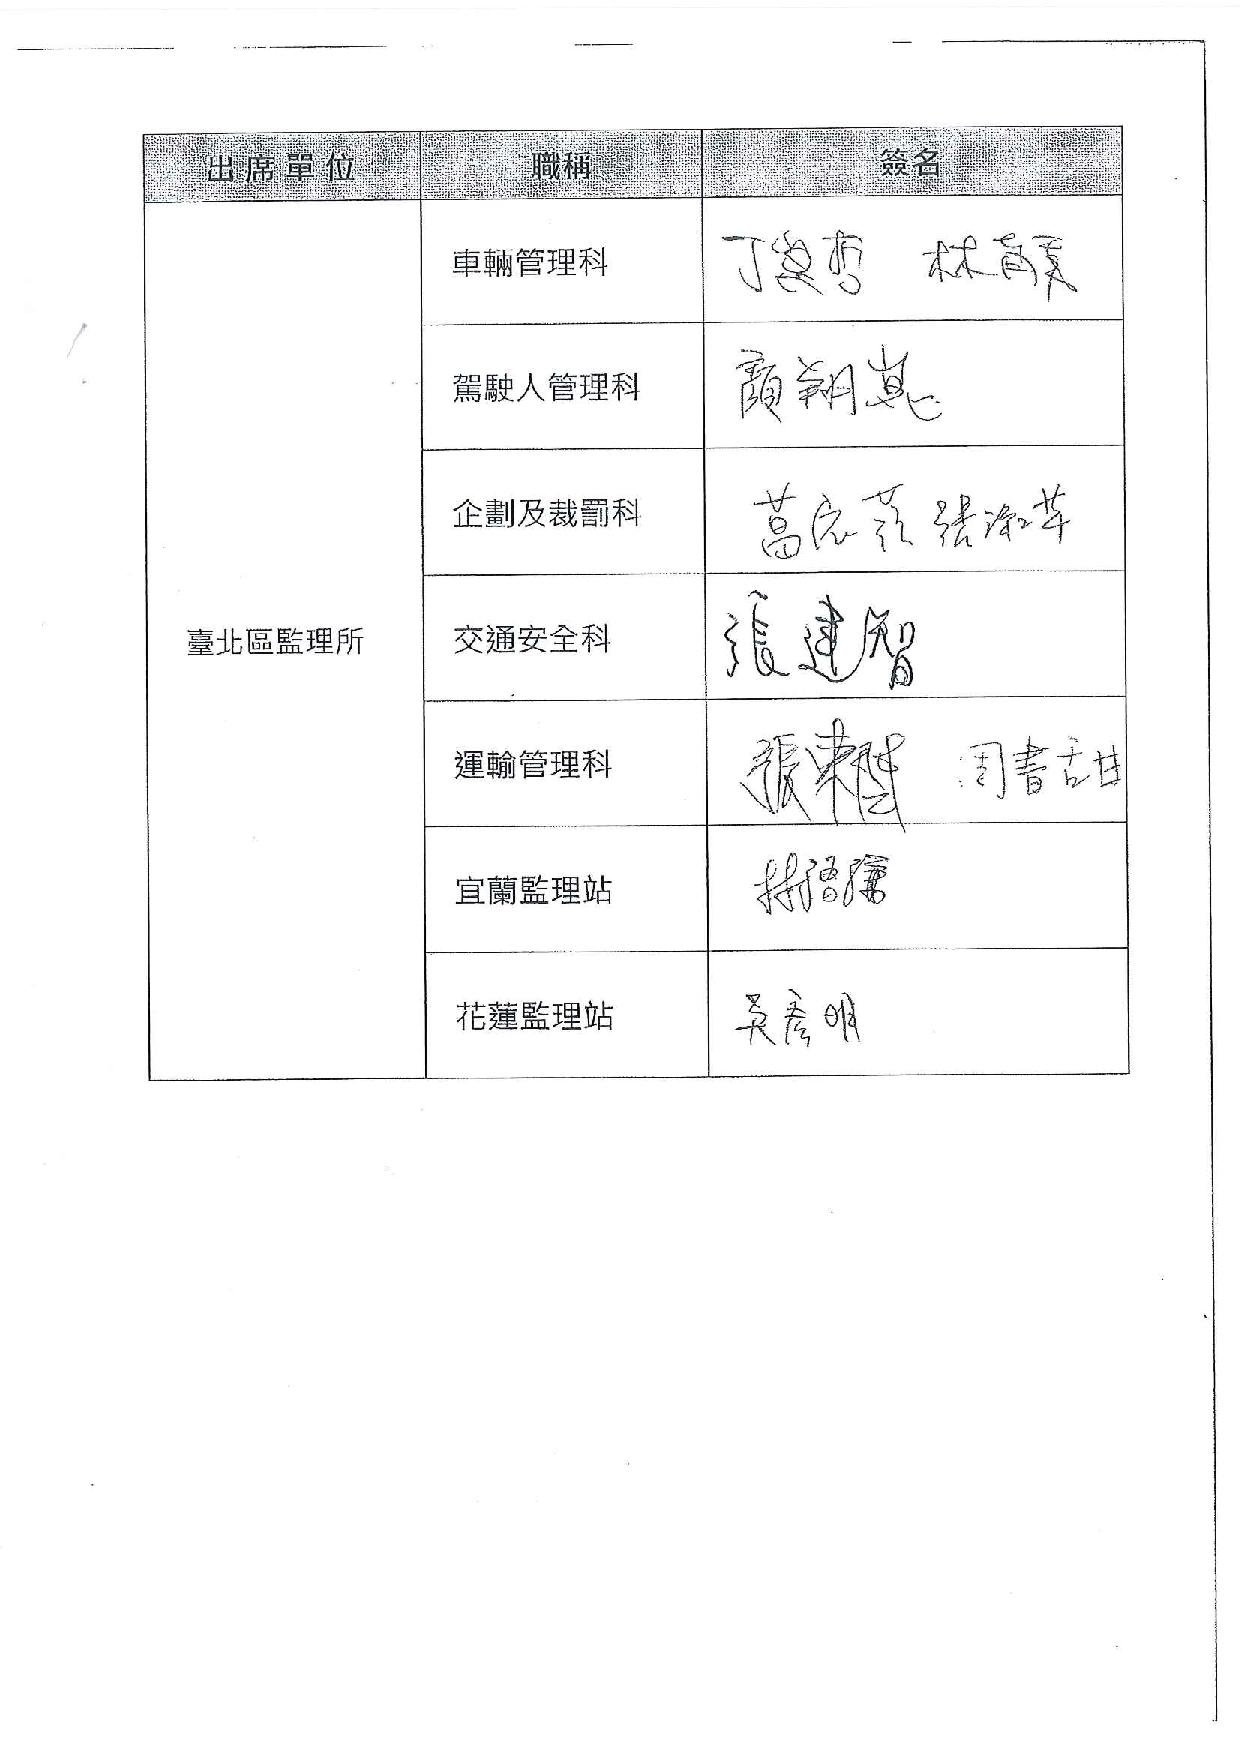 出席單位 職稱 簽名
車輛管理科 丁 哲 林育
駕駛人管理科 顏翊
企劃及裁罰科 葛 張淑苹
臺北區監理所 交通安全科 張建智
運輸管理科 張東 周書甜
宜蘭監理站 林
花蓮監理站 吳彥明